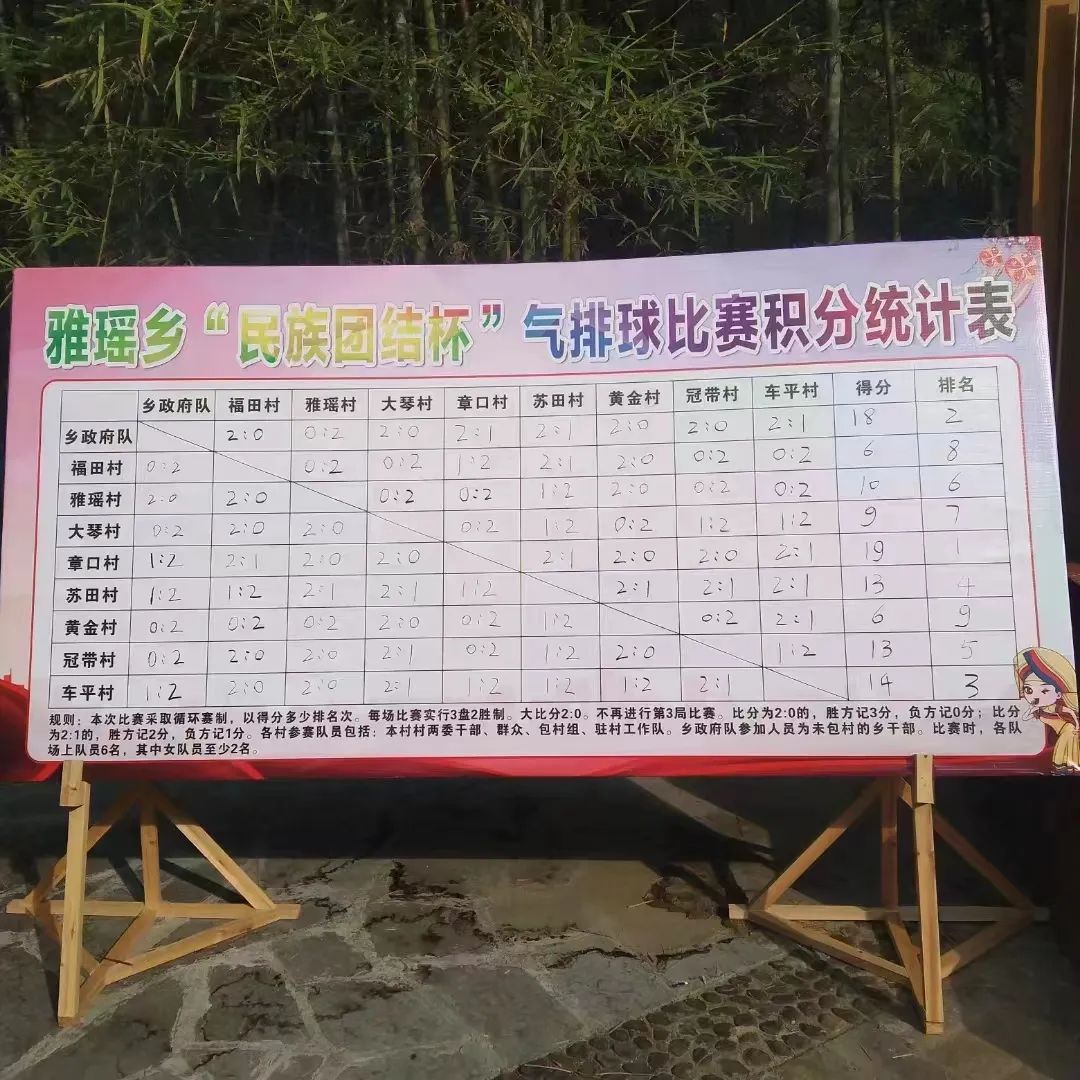 雅瑶乡“民族团结杯”气排球比赛积分统计表
乡政府队 福田村 雅瑶村 大琴村 章口村 苏田村 黄金村 冠带村 车平村 得分 排名
乡政府队 2:0 0:2 2:0 2:1 2:1 2:0 2:0 2:1 18 2
福田村 0:2 0:2 0:2 1:2 2:1 2:0 0:2 0:2 6 8
雅瑶村 2:0 2:0 0:2 0:2 1:2 2:0 0:2 0:2 10 6
大琴村 0:2 2:0 2:0 0:2 1:2 0:2 1:2 1:2 9 7
章口村 1:2 2:1 2:0 2:0 2:1 2:0 2:0 2:1 19 1
苏田村 1:2 1:2 2:1 2:1 1:2 2:1 2:1 2:1 13 4
黄金村 0:2 0:2 0:2 2:0 0:2 1:2 0:2 2:1 6 9
冠带村 0:2 2:0 2:0 2:1 0:2 1:2 2:0 1:2 13 5
车平村 1:2 2:0 2:0 2:1 1:2 1:2 1:2 2:1 14 3
规则：本次比赛采取循环赛制，以得分多少排名次。每场比赛实行3盘2胜制。大比分2:0。不再进行第3局比赛。比分为2:0的，胜方记3分，负方记0分；比分
为2:1的，胜方记2分，负方记1分。各村参赛队员包括：本村村两委干部、群众、包村组、驻村工作队。乡政府队参加人员为未包村的乡干部。比赛时，各队
场上队员6名，其中女队员至少2名。